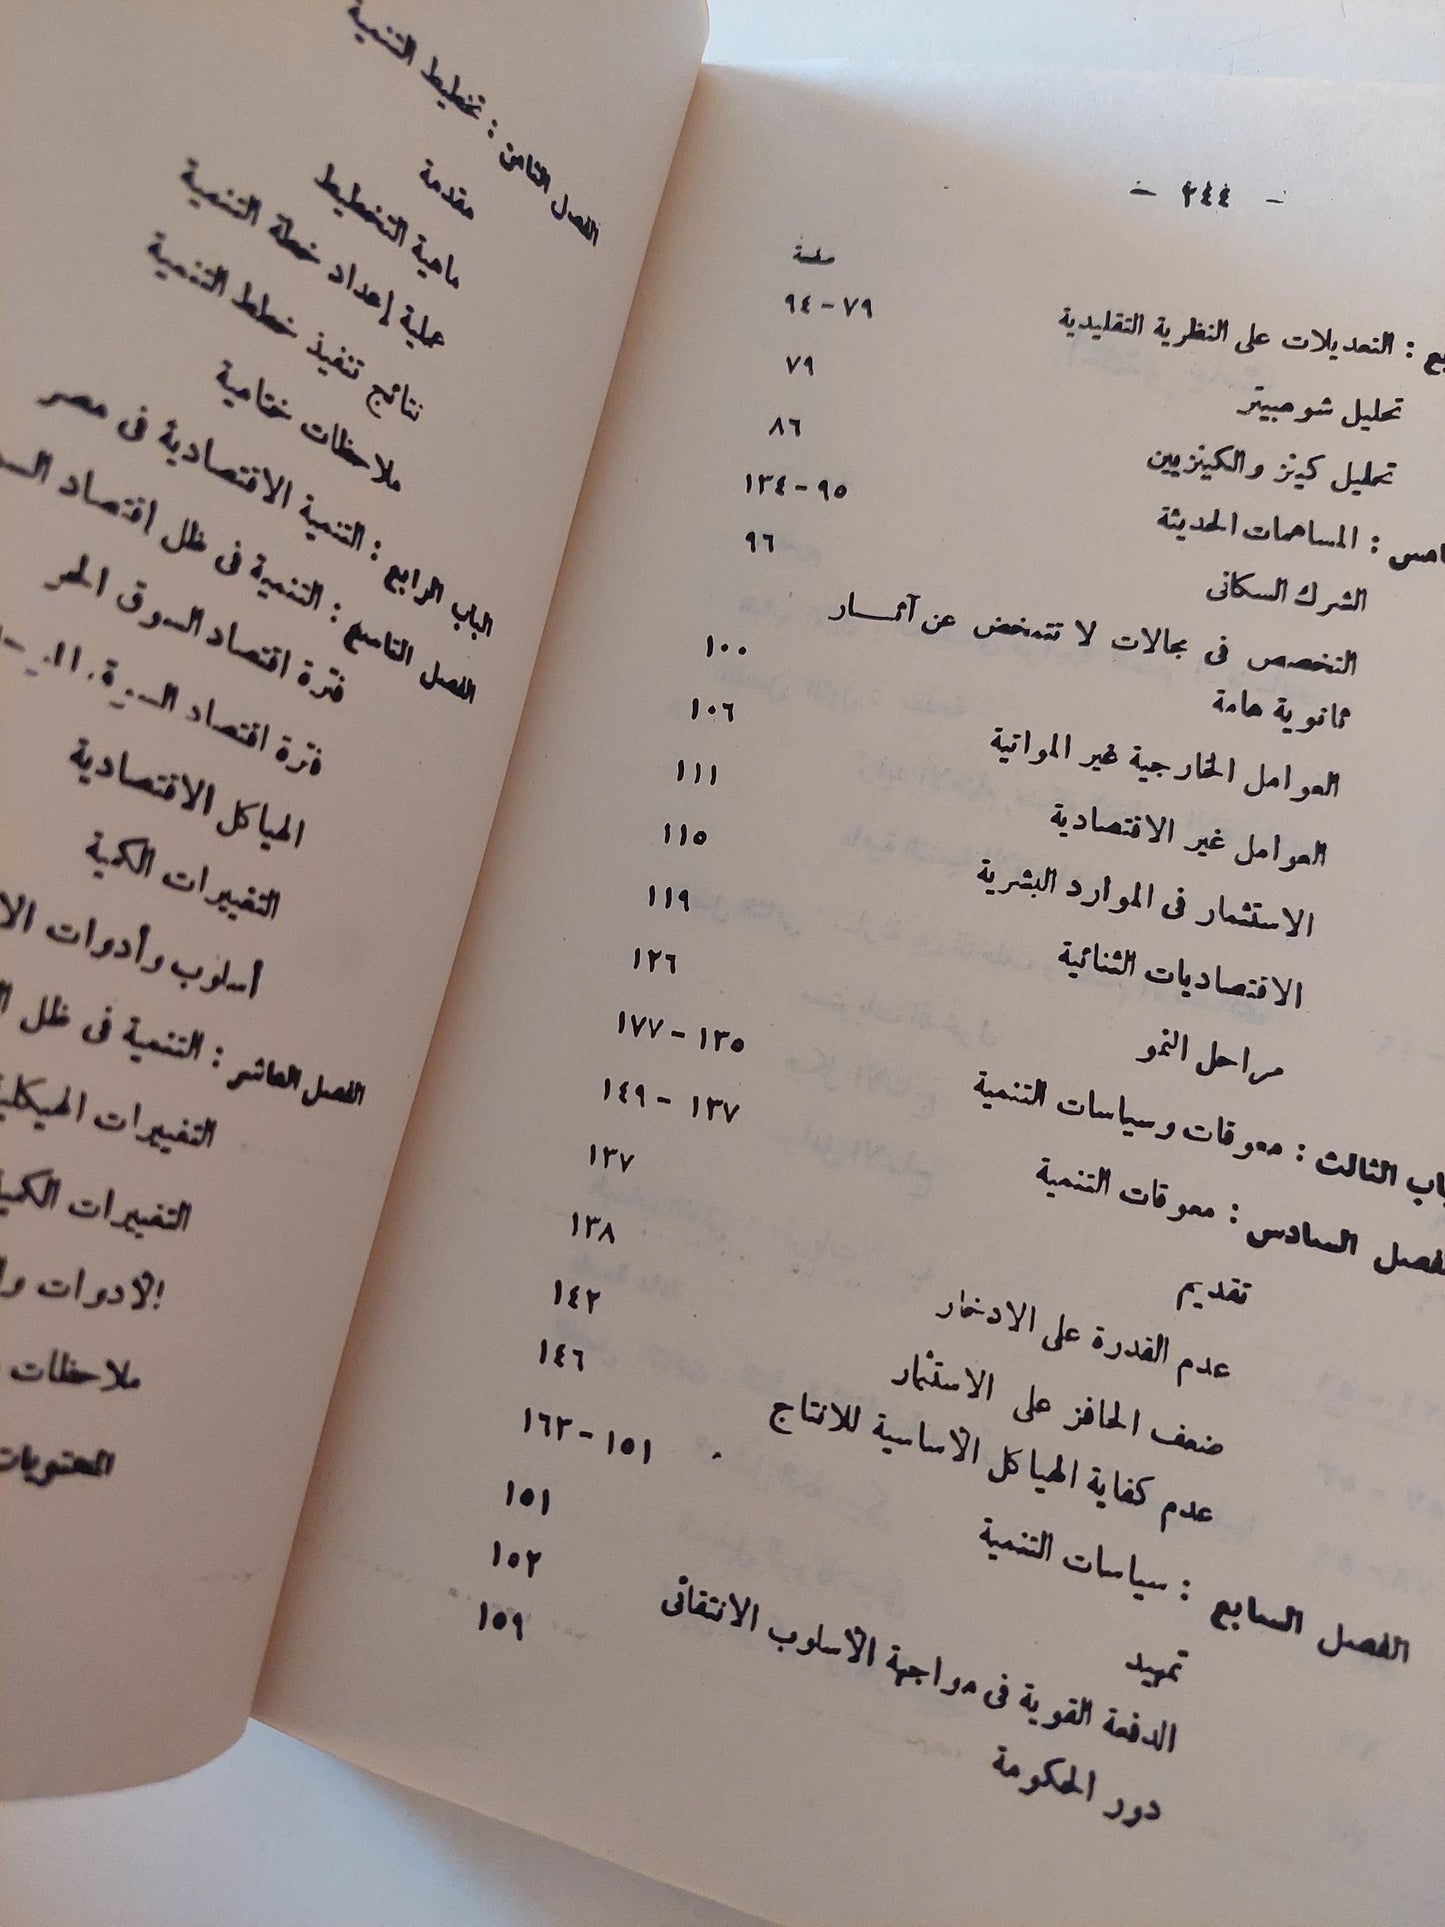 - ٢٤٤ -
صفحة
بع : التعديلات على النظرية التقليدية ٧٩ - ٩٤
تحليل شومبيتر ٧٩
تحليل كينز والكينزيين ٨٦
امس : المساهمات الحديثة ٩٥ - ١٣٤
الشرك السكانى ٩٦
التخصص فى مجالات لا تتمخض عن آثـــار
ثانوية هامة ١٠٠
العوامل الخارجية غير المواتية ١٠٦
العوامل غير الاقتصادية ١١١
الاستثمار فى الموارد البشرية ١١٥
الاقتصاديات الثنائية ١١٩
مراحل النمو ١٢٦
باب الثالث : معوقات وسياسات التنمية ١٣٥ - ١٧٧
لفصل السادس : معوقات التنمية ١٣٧ - ١٤٩
تقديم ١٣٧
عدم القدرة على الادخار ١٣٨
ضعف الحافز على الاستثمار ١٤٢
عدم كفاية الهياكل الأساسية للانتاج ١٤٦
الفصل السابع : سياسات التنمية ١٥١ - ١٦٣
تمهيد ١٥١
الدفعة القوية فى مواجهة الأسلوب الانتقائى ١٥٢
دور الحكومة ١٥٩
الفصل الثامن : تخطيط التنمية
مقدمة
ماهية التخطيط
عملية إعداد خطة التنمية
نتائج تنفيذ خطط التنمية
ملاحظات ختامية
الباب الرابع : التنمية الاقتصادية فى مصر
الفصل التاسع : التنمية فى ظل اقتصاد السو
فترة اقتصاد السوق الحر
فترة اقتصاد السوق
الهياكل الاقتصادية
التغييرات الكمية
أسلوب وأدوات الا
الفصل العاشر : التنمية فى ظل ال
التغييرات الهيكلية
التغييرات الكمية
الأدوات وا
ملاحظات
المحتويات